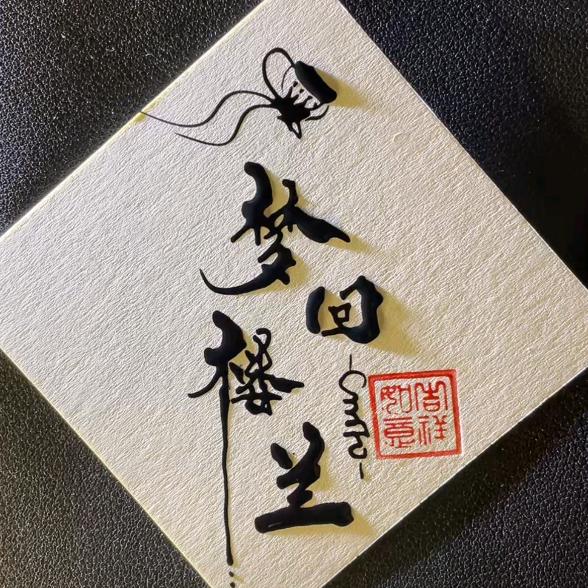 梦回
楼兰
吉祥
如意